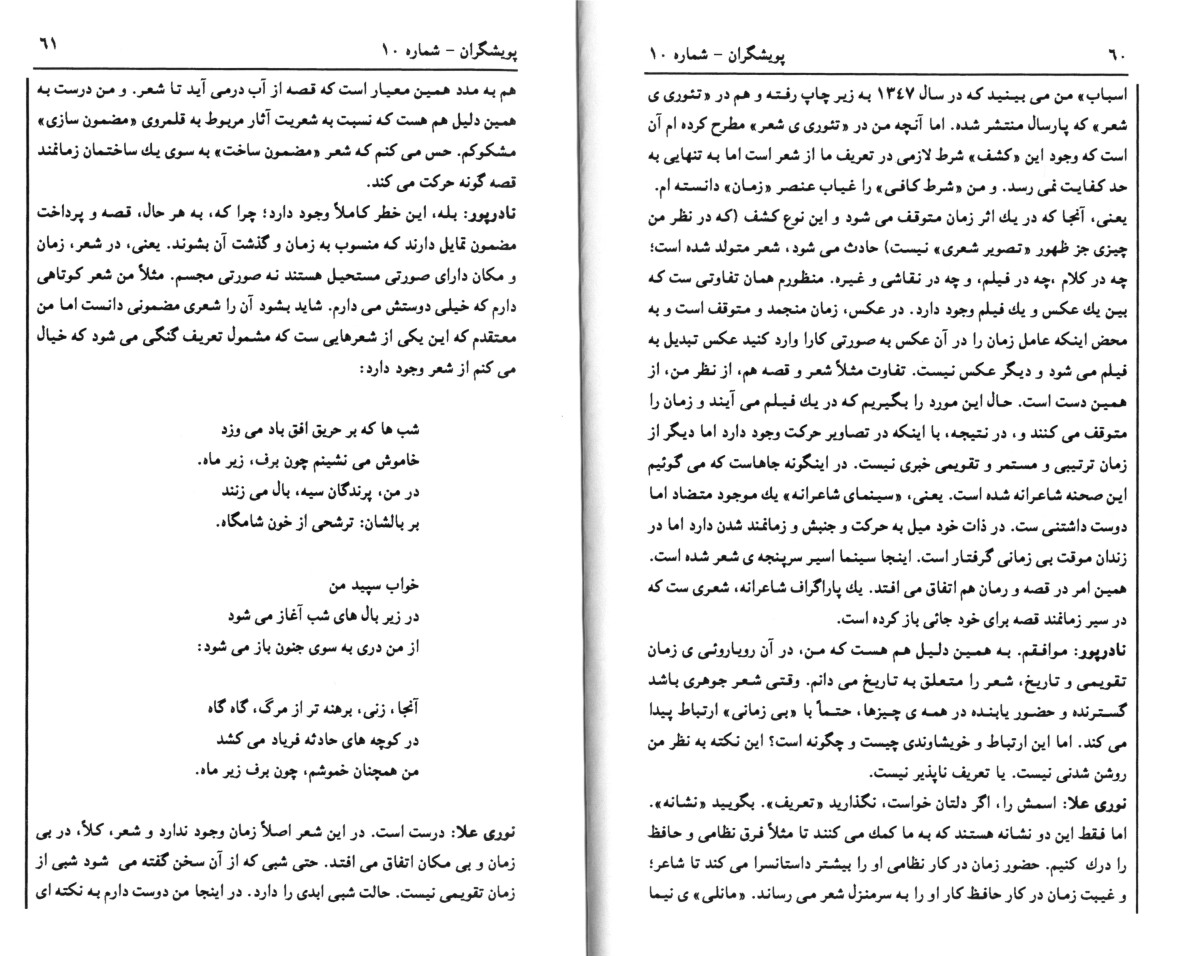 ٦٠
پویشگران - شماره ١٠
اسباب» من می بینید که در سال ۱۳۴۷ به زیر چاپ رفته و هم در «تئوری ی
شعر» که پارسال منتشر شده. اما آنچه من در «تئوری ی شعر» مطرح کرده ام آن
است که وجود این «کشف» شرط لازمی در تعریف ما از شعر است اما به تنهایی به
حد کفایت نمی رسد. و من «شرط کافی» را غیاب عنصر «زمان» دانسته ام.
یعنی، آنجا که در یك اثر زمان متوقف می شود و این نوع کشف (که در نظر من
چیزی جز ظهور «تصویر شعری» نیست) حادث می شود، شعر متولد شده است؛
چه در کلام ،چه در فیلم، و چه در نقاشی و غیره. منظورم همان تفاوتی ست که
بین یك عکس و یك فیلم وجود دارد. در عکس، زمان منجمد و متوقف است و به
محض اینکه عامل زمان را در آن عکس به صورتی کارا وارد کنید عکس تبدیل به
فیلم می شود و دیگر عکس نیست. تفاوت مثلاً شعر و قصه هم، از نظر من، از
همین دست است. حال این مورد را بگیریم که در یك فیلم می آیند و زمان را
متوقف می کنند و، در نتیجه، با اینکه در تصاویر حرکت وجود دارد اما دیگر از
زمان ترتیبی و مستمر و تقویمی خبری نیست. در اینگونه جاهاست که می گوئیم
این صحنه شاعرانه شده است. یعنی، «سینمای شاعرانه» یك موجود متضاد اما
دوست داشتنی ست. در ذات خود میل به حرکت و جنبش و زمانمند شدن دارد اما در
زندان موقت بی زمانی گرفتار است. اینجا سینما اسیر سرپنجه ی شعر شده است.
همین امر در قصه و رمان هم اتفاق می افتد. یك پاراگراف شاعرانه، شعری ست که
در سیر زمانمند قصه برای خود جائی باز کرده است.
نادرپور: موافقم. به همین دلیل هم هست که من، در آن رویاروئی ی زمان
تقویمی و تاریخ، شعر را متعلق به تاریخ می دانم. وقتی شعر جوهری باشد
گسترنده و حضور یابنده در همه ی چیزها، حتماً با «بی زمانی» ارتباط پیدا
می کند. اما این ارتباط و خویشاوندی چیست و چگونه است؟ این نکته به نظر من
روشن شدنی نیست. یا تعریف ناپذیر نیست.
نوری علا: اسمش را، اگر دلتان خواست، نگذارید «تعریف». بگویید «نشانه».
اما فقط این دو نشانه هستند که به ما کمك می کنند تا مثلاً فرق نظامی و حافظ
را درك کنیم. حضور زمان در کار نظامی او را بیشتر داستانسرا می کند تا شاعر؛
و غیبت زمان در کار حافظ کار او را به سرمنزل شعر می رساند. «مانلی» ی نیما
٦١
پویشگران - شماره ١٠
هم به مدد همین معیار است که قصه از آب درمی آید تا شعر. و من درست به
همین دلیل هم هست که نسبت به شعریت آثار مربوط به قلمروی «مضمون سازی»
مشکوکم. حس می کنم که شعر «مضمون ساخت» به سوی یك ساختمان زمانمند
قصه گونه حرکت می کند.
نادرپور: بله، این خطر کاملاً وجود دارد؛ چرا که، به هر حال، قصه و پرداخت
مضمون تمایل دارند که منسوب به زمان و گذشت آن بشوند. یعنی، در شعر، زمان
و مکان دارای صورتی مستحیل هستند نه صورتی مجسم. مثلاً من شعر کوتاهی
دارم که خیلی دوستش می دارم. شاید بشود آن را شعری مضمونی دانست اما من
معتقدم که این یکی از شعرهایی ست که مشمول تعریف گنگی می شود که خیال
می کنم از شعر وجود دارد:
شب ها که بر حریق افق باد می وزد
خاموش می نشینم چون برف، زیر ماه.
در من، پرندگان سیه، بال می زنند
بر بالشان: ترشحی از خون شامگاه.
خواب سپید من
در زیر بال های شب آغاز می شود
از من دری به سوی جنون باز می شود:
آنجا، زنی، برهنه تر از مرگ، گاه گاه
در کوچه های حادثه فریاد می کشد
من همچنان خموشم، چون برف زیر ماه.
نوری علا: درست است. در این شعر اصلاً زمان وجود ندارد و شعر، کلاً، در بی
زمان و بی مکان اتفاق می افتد. حتی شبی که از آن سخن گفته می شود شبی از
زمان تقویمی نیست. حالت شبی ابدی را دارد. در اینجا من دوست دارم به نکته ای